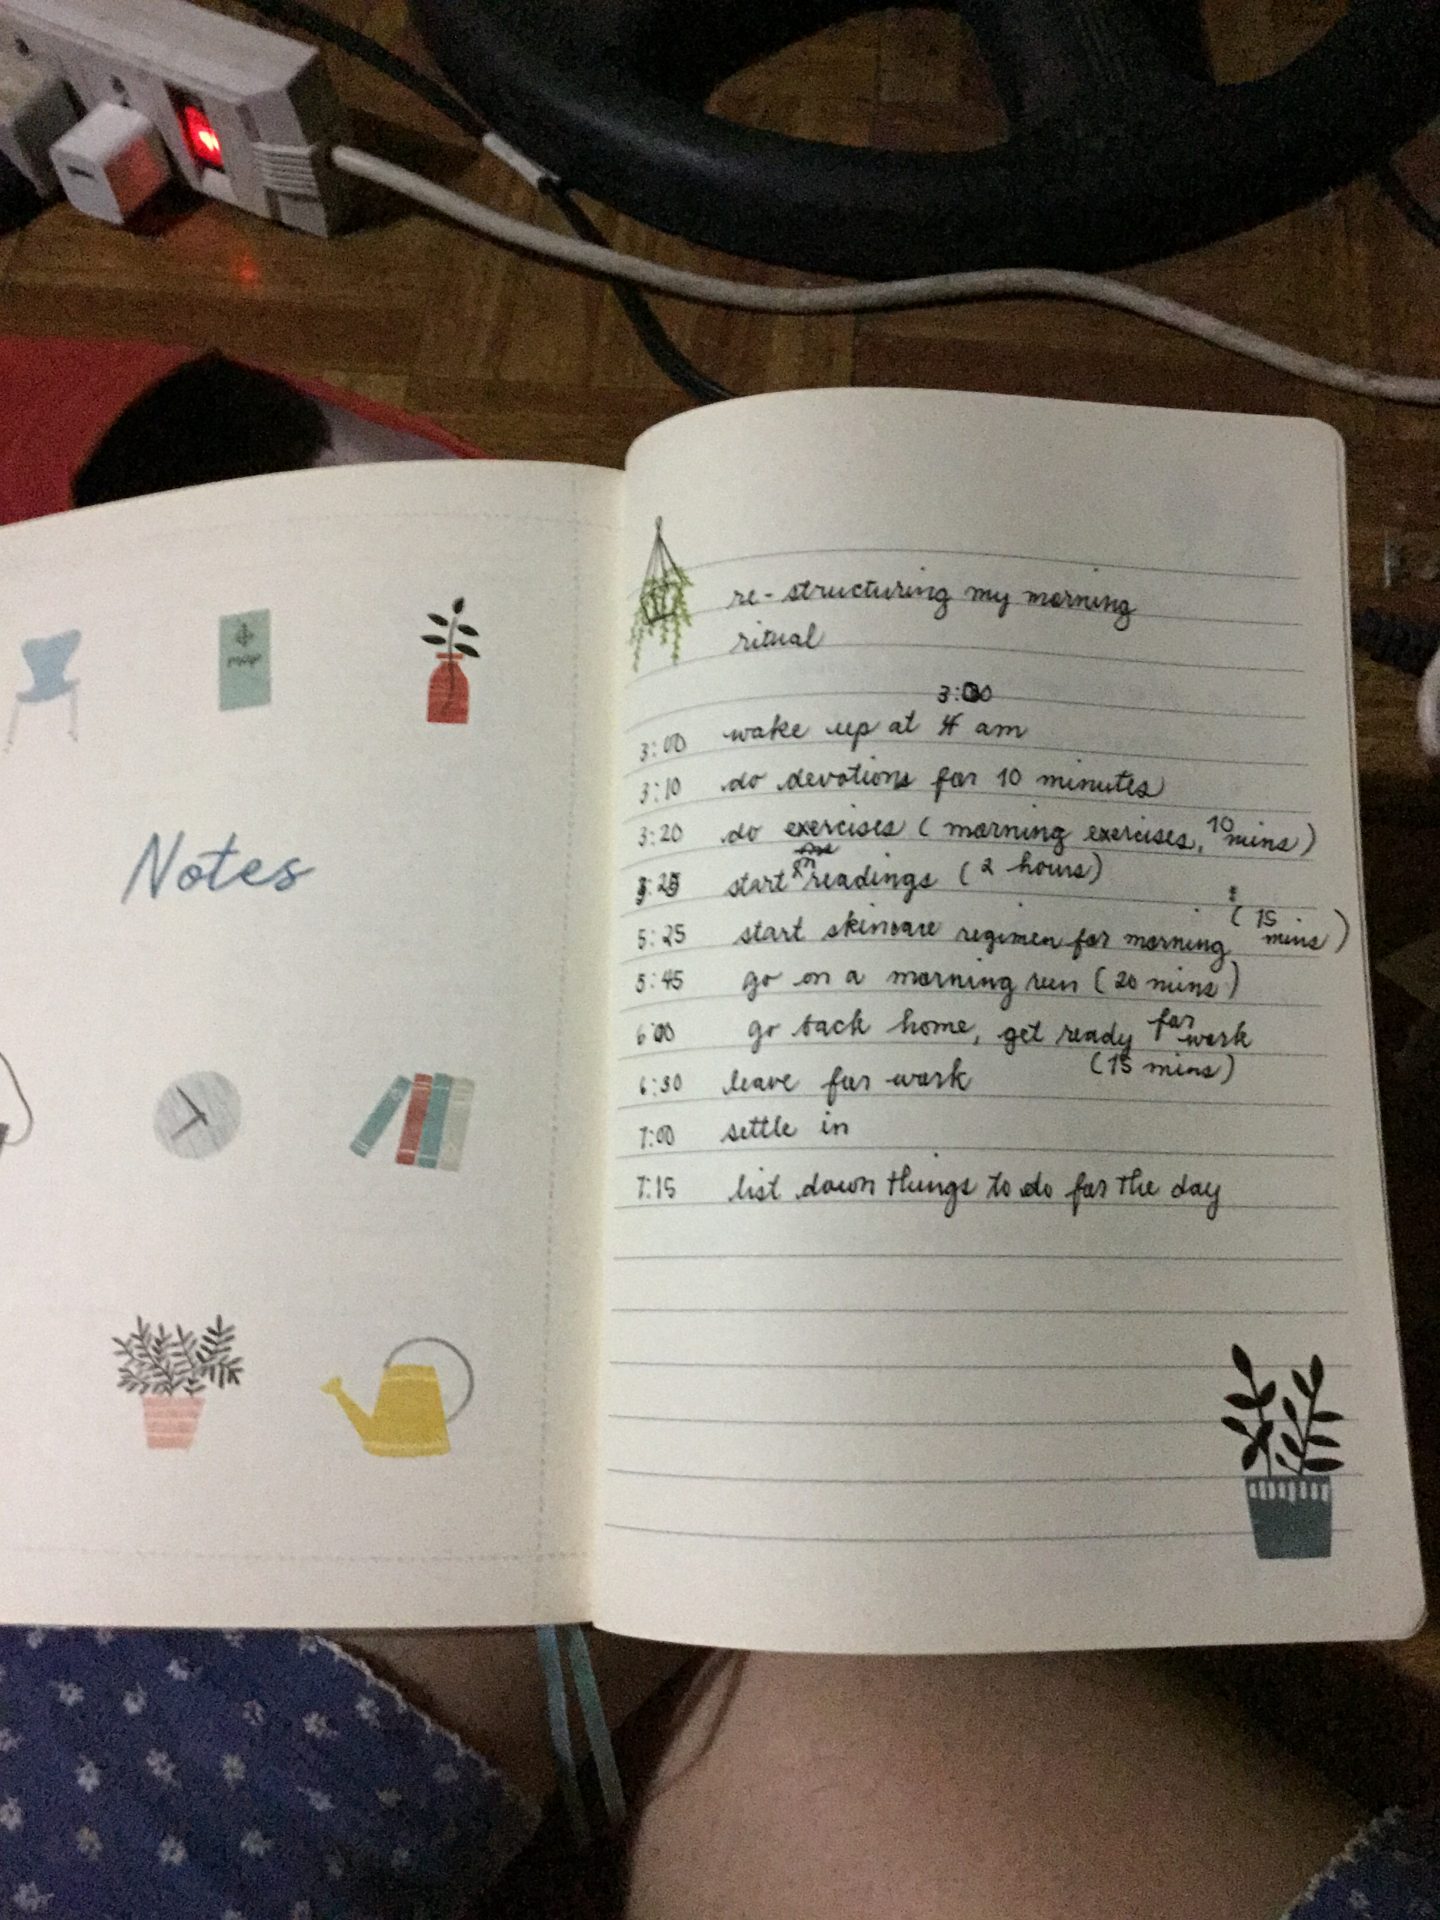 Notes
re-structuring my morning
ritual
3:00
3:00 wake up at 4 am
3:10 do devotions for 10 minutes
3:20 do exercises (morning exercises, 10 mins)
3:25 start on readings (2 hours)
5:25 start skincare regimen for morning (15 mins)
5:45 go on a morning run (20 mins)
6:00 go back home, get ready for work
(15 mins)
6:30 leave for work
7:00 settle in
7:15 list down things to do for the day